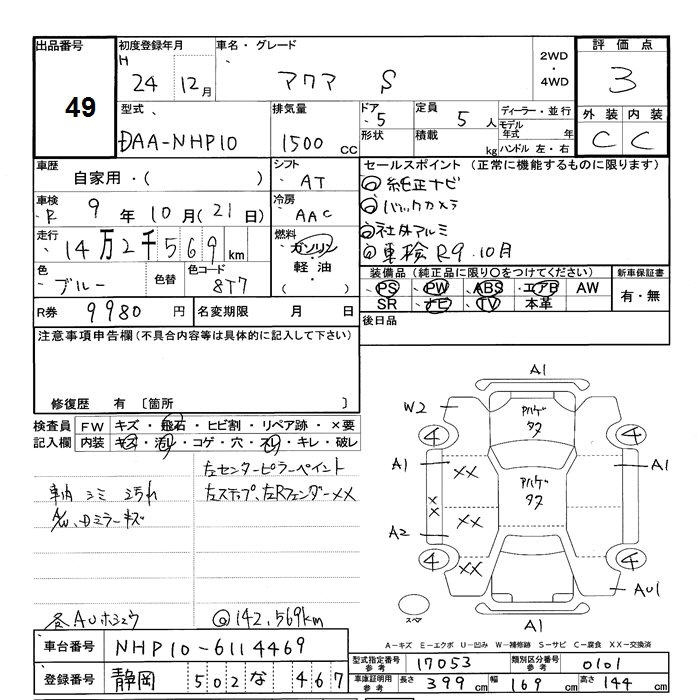 出品番号 49
初度登録年月 H 24 12月
車名・グレード アクア S
2WD・4WD
評価点 3
型式 DAA-NHP10
排気量 1500 CC
ドア 5
形状
定員 5 人
積載 kg
ディーラー・並行
モデル年式 年
ハンドル 左・右
外装 内装
C C
車歴 自家用・( )
シフト AT
車検 R 9年 10月(21日)
冷房 AAC
走行 14万2千569 km
燃料 ガソリン・軽油・( )
色 ブルー
色替
色コード 8T7
R券 9980 円
名変期限 月 日
セールスポイント(正常に機能するものに限ります)
◎純正ナビ
◎バックカメラ
◎社外アルミ
◎車検R9.10月
装備品(純正品に限り○をつけてください)
新車保証書
・PS ・PW ABS ・エアB AW
SR ナビ TV 本革
有・無
後日品
注意事項申告欄(不具合内容等は具体的に記入して下さい)
修復歴 有〔箇所 〕
検査員記入欄
FW キズ・飛石・ヒビ割・リペア跡・×要
内装 キズ・汚れ・コゲ・穴・スレ・キレ・破レ
車内 シミ 汚れ
A/W、Dミラーキズ
左センターピラーペイント
左ステップ、左Rフェンダー××
各AUホシュウ
◎142,569km
A1
W2
アハゲ タス
4 4
A1 ×× A1
アハゲ タス
××
××
A2
4 4
××
AU1
スペア
A1
A-キズ E-エクボ U-凹み W-補修跡 S-サビ C-腐食 XX-交換済
車台番号 NHP10-6114469
型式指定番号 参考 17053
類別区分番号 参考 0101
登録番号 静岡 502 な 467
車庫証明用 参考 長さ 399 cm 幅 169 cm 高さ 144 cm